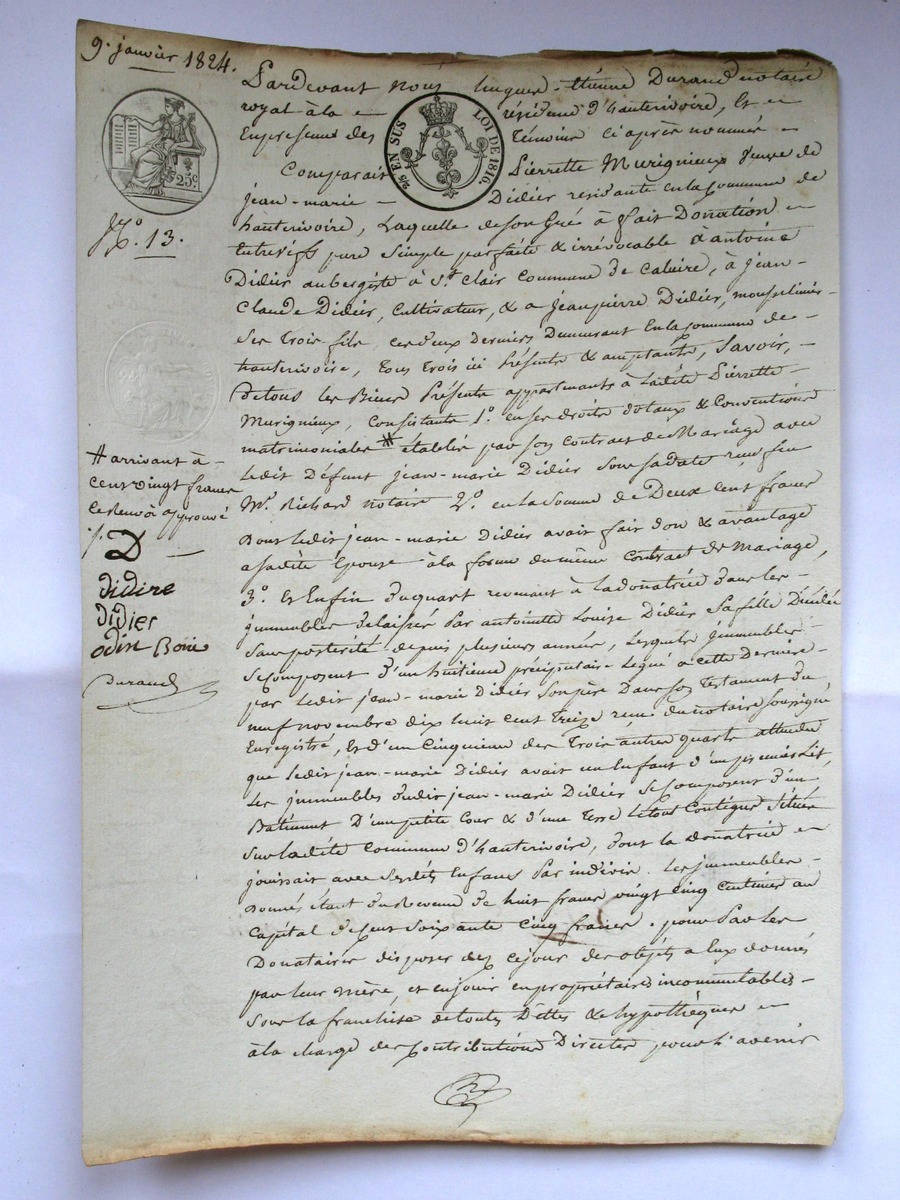 9. janvier 1824.
Pardevant nous hugues-étienne Durand notaire
royal à la résidence d'hauterivoire, et en
25c EN SUS LOI DE 1816.
En presence des Témoins ci après nommés
25c
Comparait Pierrette Murigneux veuve de
jean-marie Didier residante en la Commune de
No. 13.
hauterivoire, laquelle de son Gré à fait Donation
Entrevifs pure simple parfaite & irrévocable à antoine
Didier aubergiste à St. Clair Commune de Caluire, à Jean-
Claude Didier, Cultivateur, & a Jeanpierre Didier,
Ses Trois fils, ces deux Derniers Demeurant En la Commune de
hauterivoire, tous Trois ici Présents & acceptants, Savoir,
De tous les Biens Présents appartenants à ladite Pierrette
Murigneux, Consistants 1o. en ses droits dotaux & Conventions
matrimoniales # établies par son Contract de Mariage avec
# arrivant à
cent vingt francs
le Renvoi approuvé
D
didire
didier
odin
Durand
Ledit Défunt jean-marie Didier sous sa date reçu feu
Mr. Richard notaire 2o. en la Somme de Deux cent francs
Dont ledit jean-marie Didier avait fait don & avantage
a sadite Epouse à la forme du même Contract de Mariage,
3o. Et Enfin du quart revenant à la donatrice dans les
immeubles délaissés Par antoinette Louise Didier Sa fille Décédée
Sans postérité depuis plusieurs années, lesquels immeubles
se composent d'un huitieme préciputaire Legué a cette Derniere
par ledit jean-marie Didier son père Dans son Testament du
neuf novembre dix huit cent Treize reçu du notaire soussigné
Enregistré, Et d'un Cinquieme des Trois autres quarts attendu
que ledit jean-marie Didier avait un Enfant d'un premier Lit,
Les immeubles dudit jean-marie Didier se composent d'un
Bâtiment D'une petite Cour & d'une Terre Le tout Contigus Situés
Sur ladite Commune d'hauterivoire, dont la Donatrice
jouissait avec Sesdits Enfans Par indivis. Les immeubles
Donnés étant du Revenu de huit francs vingt cinq centimes au
Capital de cent soixante cinq francs. pour Par les
Donataires disposer dez cejour des objets a Eux donnés
par leur mère, et en jouir en propriétaires incommutables
Sous la franchise de toutes Dettes & hypothèques
à la charge des Contributions Directes pour l'avenir